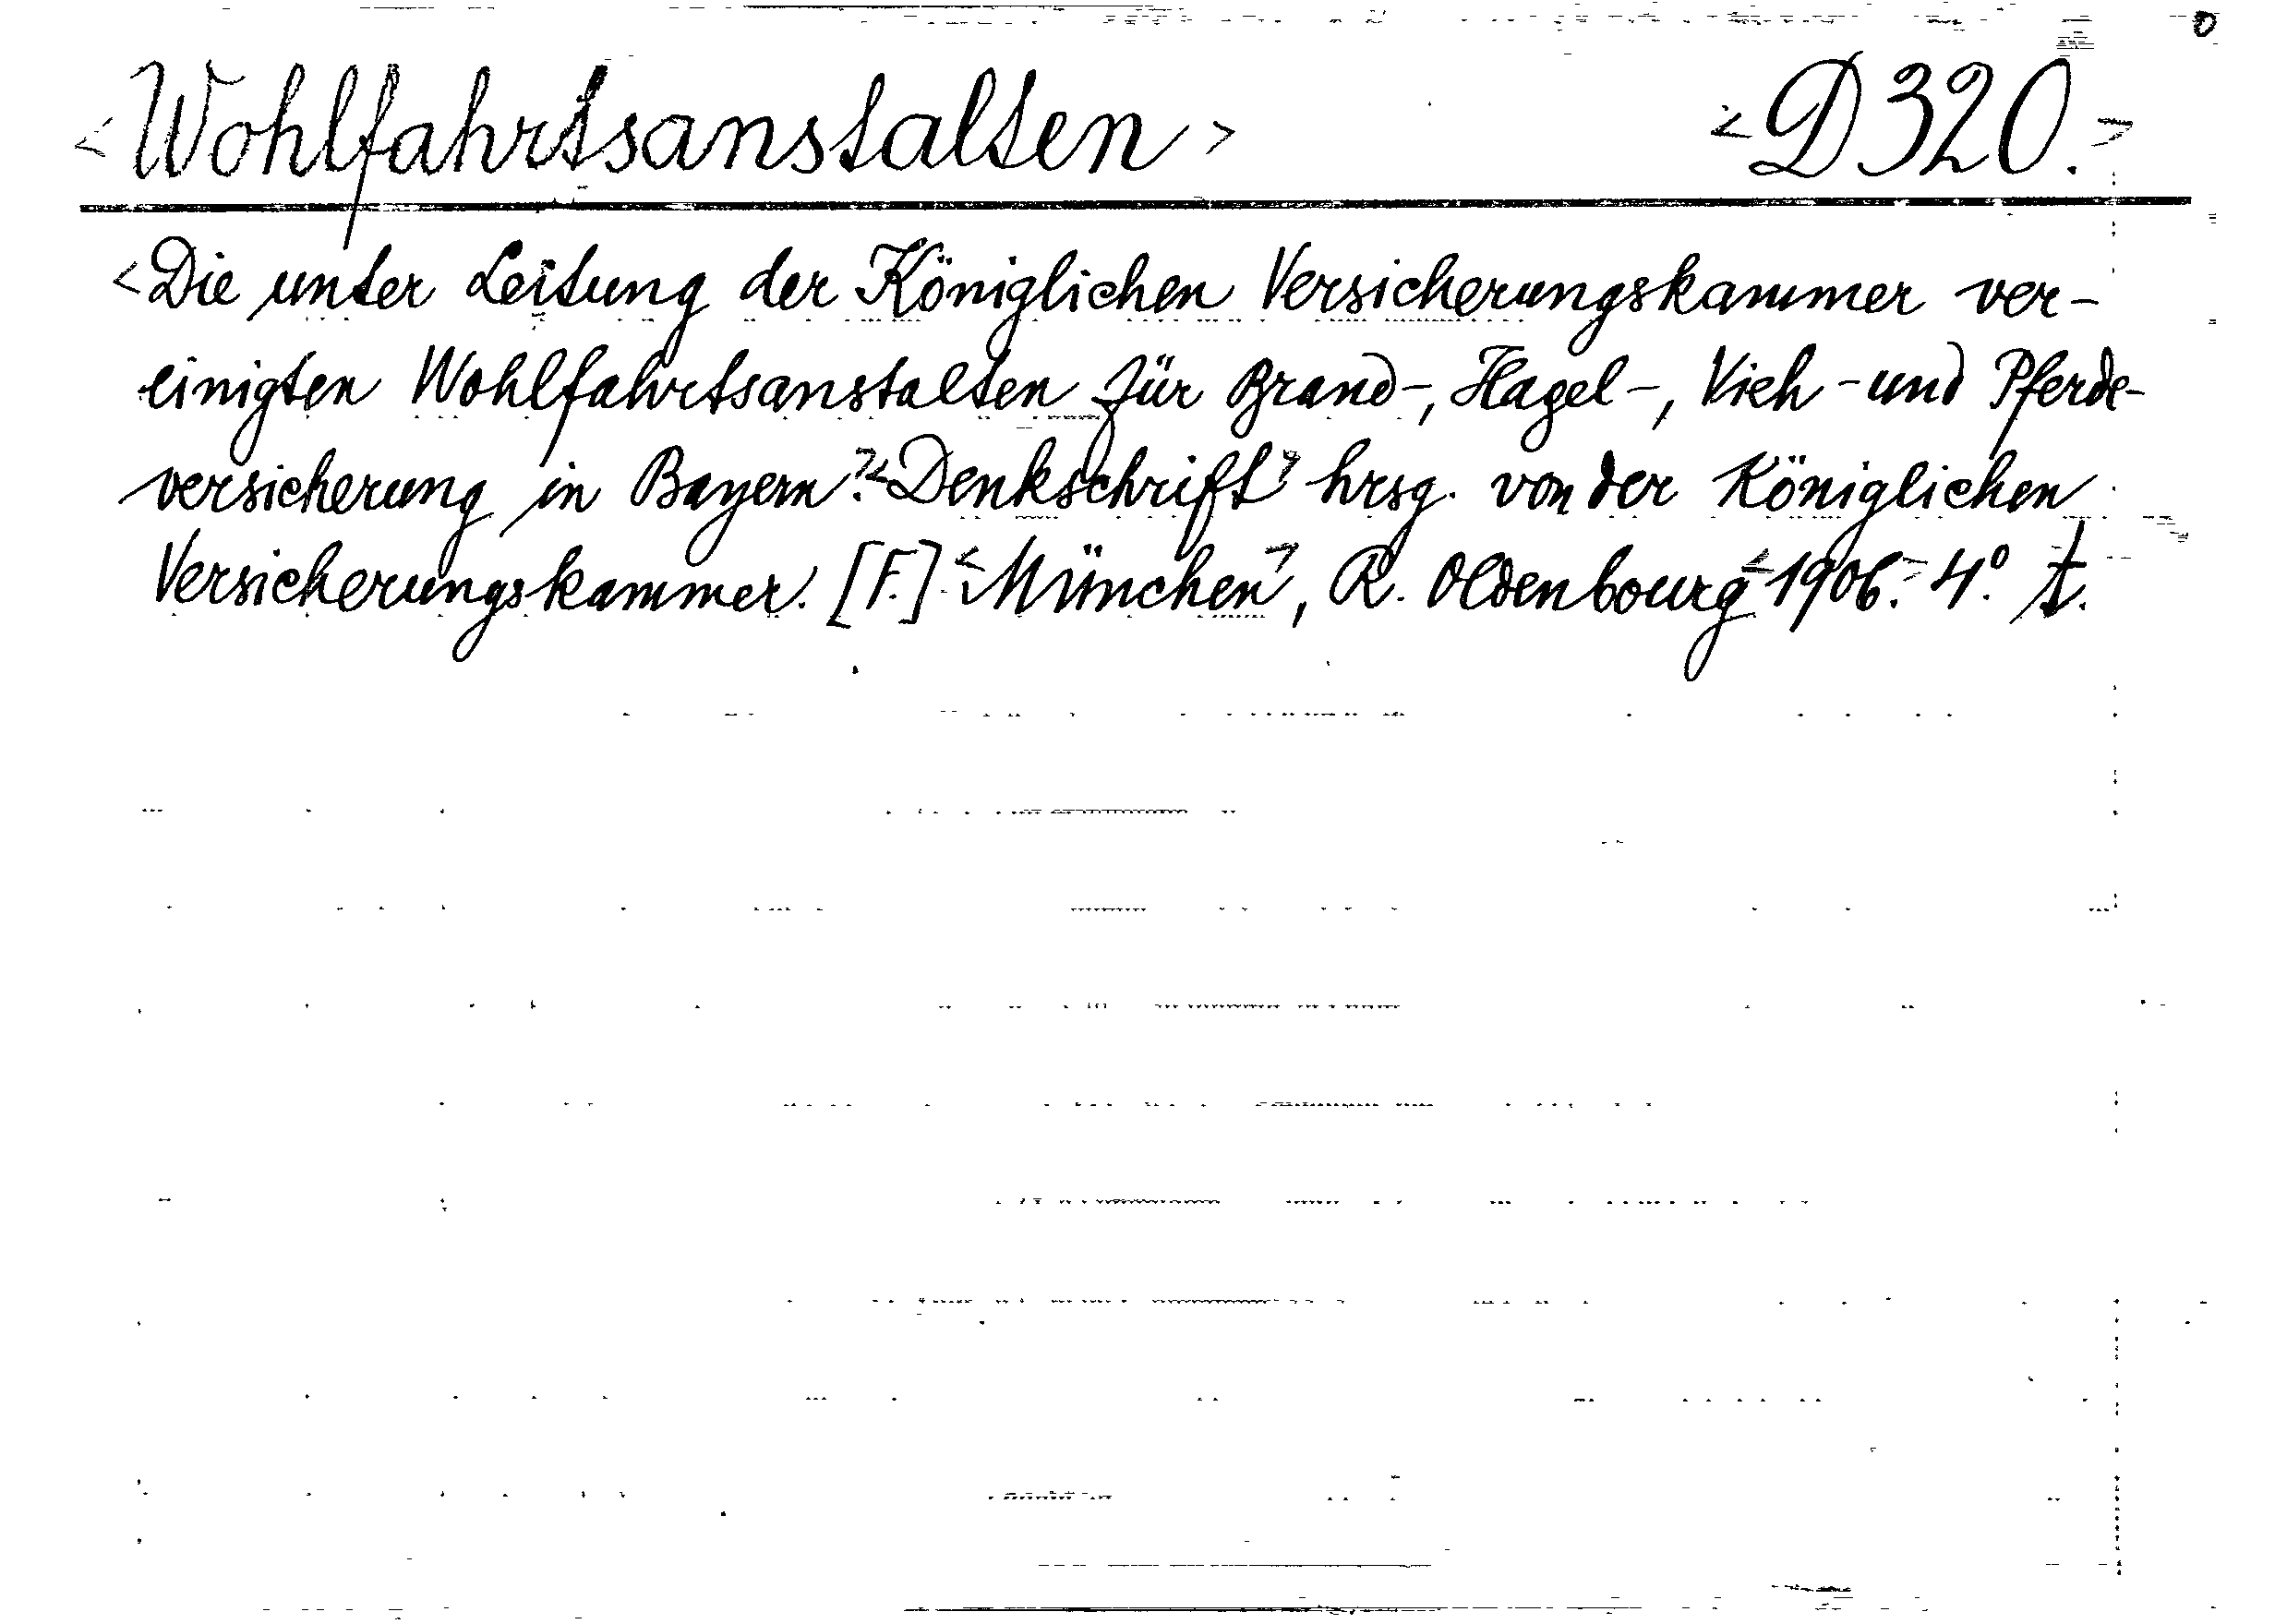 <Wohlfahrtsanstalten> <D 320.>
<Die unter Leitung der Königlichen Versicherungskammer ver-
einigten Wohlfahrtsanstalten für Brand-, Hagel-, Vieh- und Pferde-
versicherung in Bayern.> <Denkschrift> hrsg. von der Königlichen
Versicherungskammer. [F.] <München>, R. Oldenbourg <1906.> 4°. t.